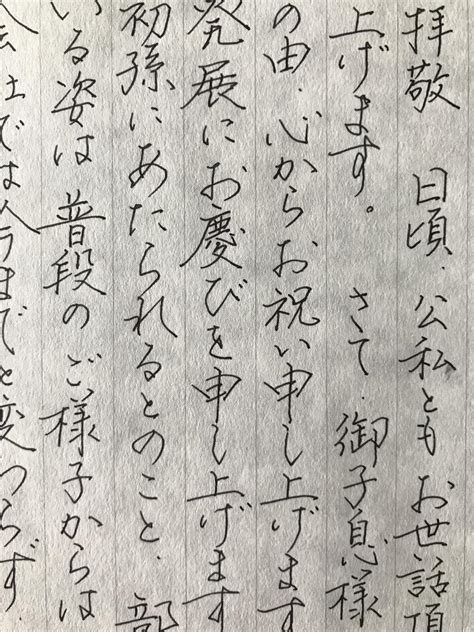 拝敬 日頃、公私ともお世話頂
上げます。 さて、御子息様
の由、心からお祝い申し上げます
発展にお慶びを申し上げます
初孫にあたられるとのこと、部
いる姿は普段のご様子からは
会社では今までと変わらず